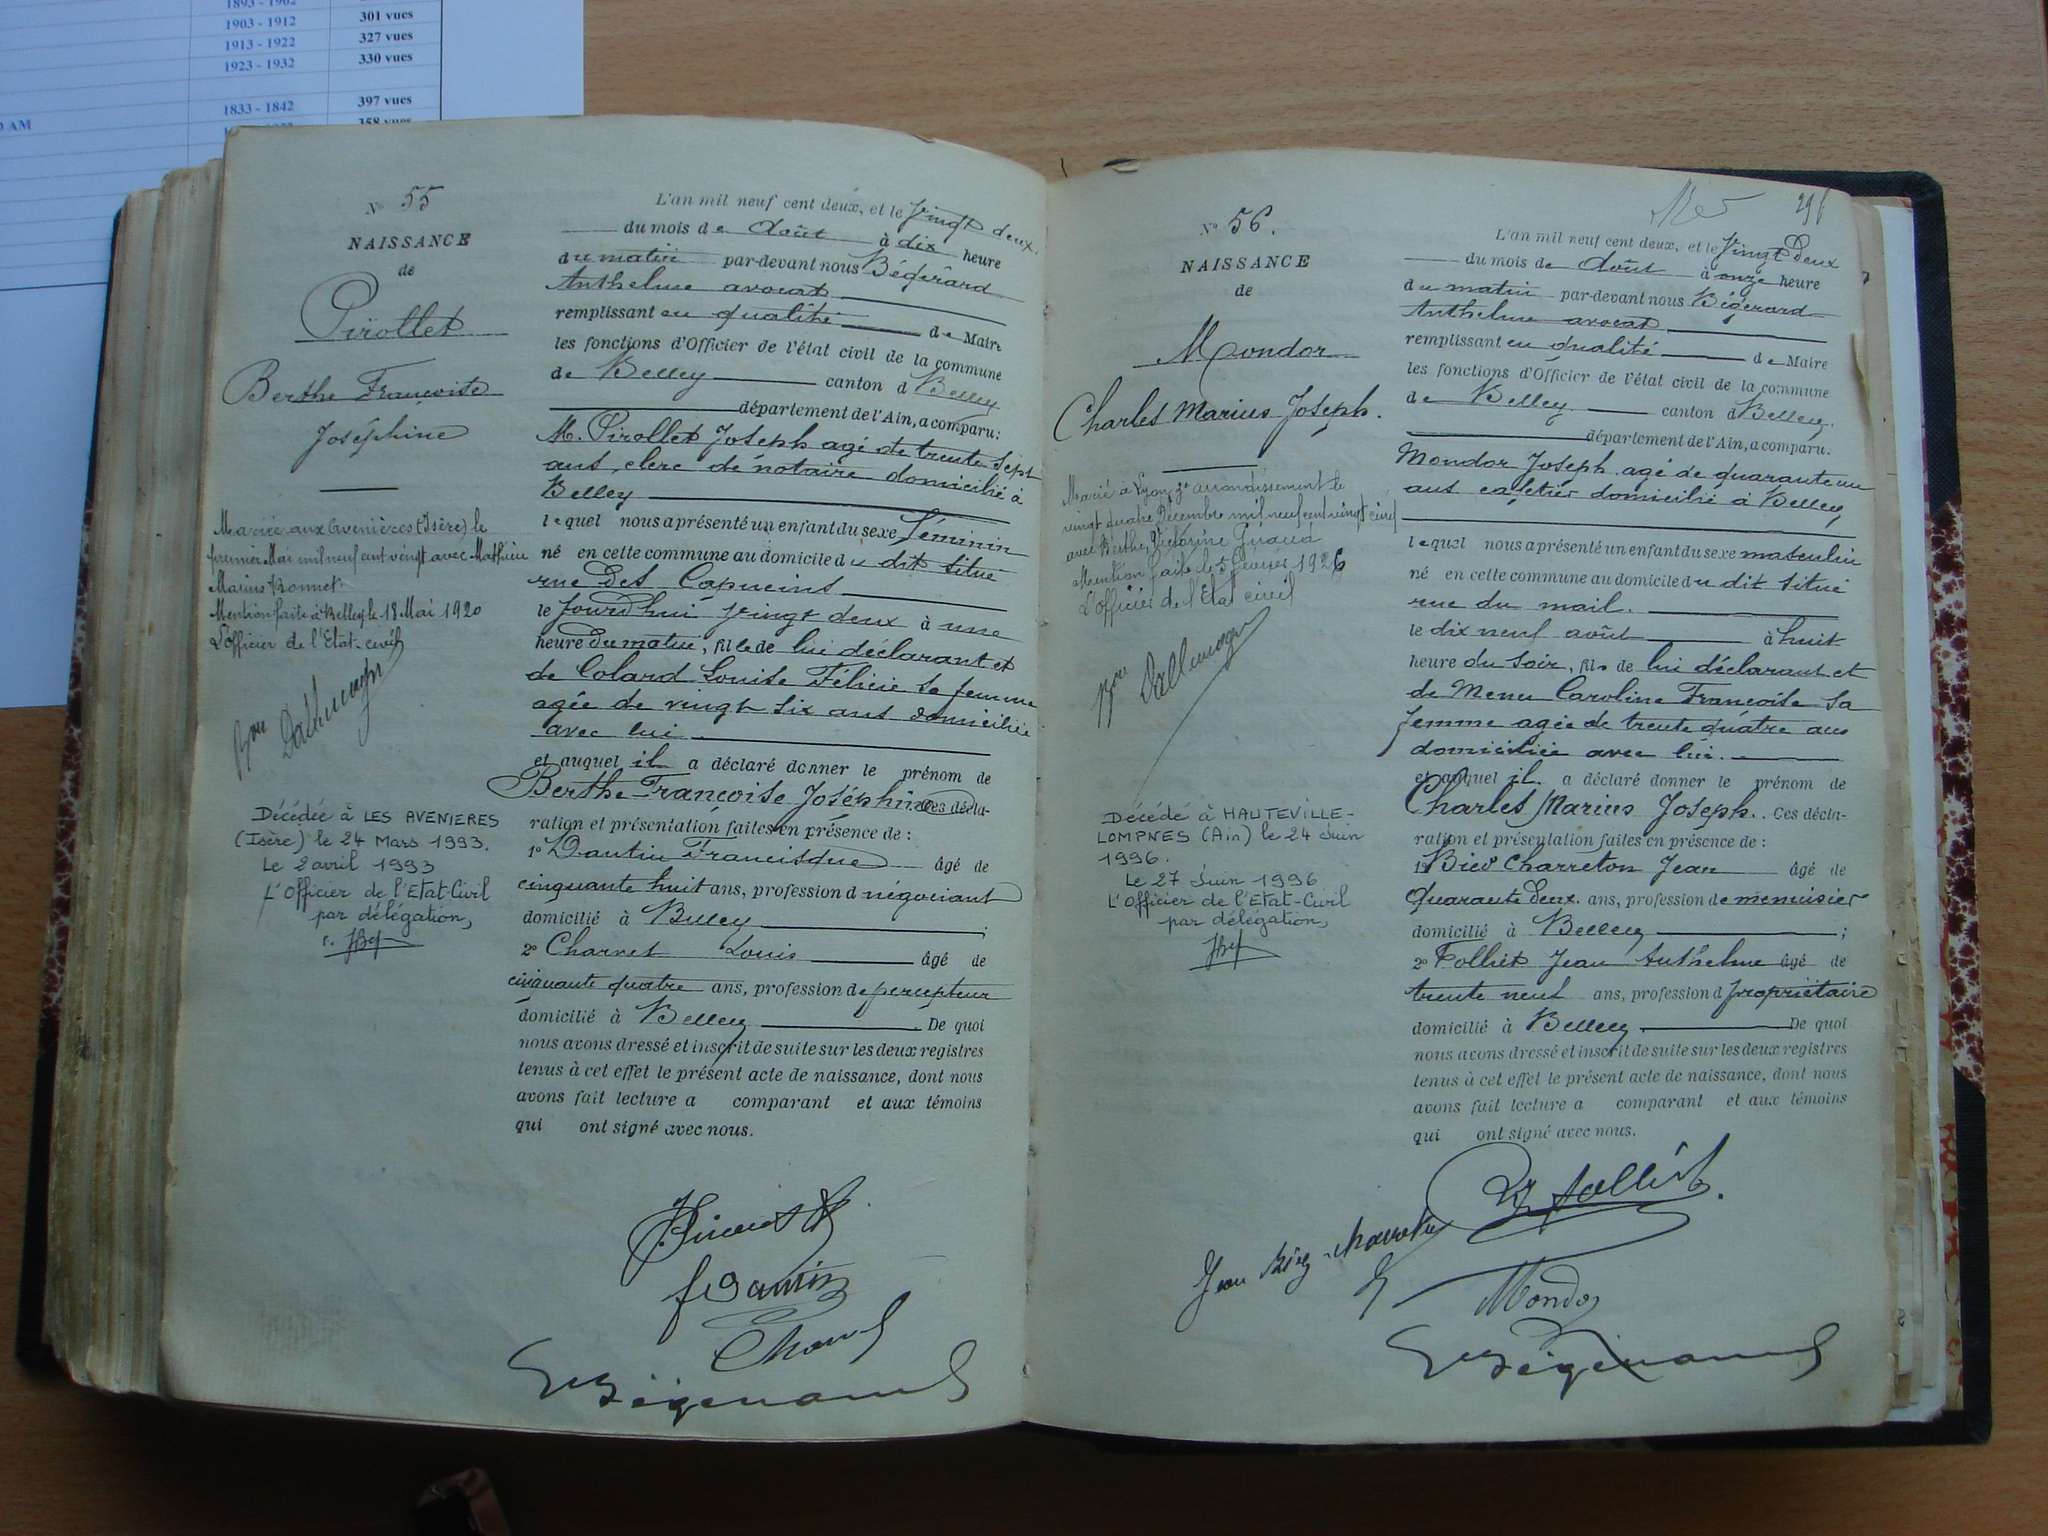 1893 - 1902
1903 - 1912 301 vues
1913 - 1922 327 vues
1923 - 1932 330 vues
1833 - 1842 397 vues
AM
358 vues
N° 55
NAISSANCE
de
Pirollet
Berthe Françoise
Joséphine
Mariée aux Avenières (Isère) le
premier Mai mil neuf cent vingt avec Mathieu
Marius Bonnet
Mention faite à Belley le 18 Mai 1920
L'officier de l'Etat-civil
Décédée à LES AVENIERES
(Isère) le 24 Mars 1993.
Le 2 avril 1993
L'Officier de l'Etat-Civil
par délégation,
L'an mil neuf cent deux, et le vingt deux
du mois de Août à dix heure
du matin par-devant nous Bégérard
Anthelme avocat
remplissant en qualité de Maire
les fonctions d'Officier de l'état civil de la commune
de Belley canton d Belley
département de l'Ain, a comparu:
M. Pirollet Joseph agé de trente sept
ans, clerc de notaire domicilié à
Belley
lequel nous a présenté un enfant du sexe féminin
né en cette commune au domicile du dit situé
rue des Capucins
le jourd'hui vingt deux à une
heure du matin, fille de lui déclarant et
de Colard Louise Félicie sa femme
agée de vingt six ans domiciliée
avec lui
et auquel il a déclaré donner le prénom de
Berthe Françoise Joséphine Ces décla-
ration et présentation faites en présence de :
1° Dantin Francisque âgé de
cinquante huit ans, profession d négociant
domicilié à Belley ;
2° Charvet Louis âgé de
cinquante quatre ans, profession de percepteur
domicilié à Belley De quoi
nous avons dressé et inscrit de suite sur les deux registres
tenus à cet effet le présent acte de naissance, dont nous
avons fait lecture a comparant et aux témoins
qui ont signé avec nous.
f Dantin
Charvet
Bégérard
296
N° 56.
NAISSANCE
de
Mondor
Charles Marius Joseph.
Marié à Lyon 3e arrondissement le
vingt quatre Décembre mil neuf cent vingt cinq
avec Berthe, Victorine Giraud
Mention faite le 5 février 1926
L'officier de l'Etat civil
Décédé à HAUTEVILLE-
LOMPNES (Ain) le 24 Juin
1996.
Le 27 Juin 1996
L'Officier de l'Etat-Civil
par délégation,
L'an mil neuf cent deux, et le vingt Deux
du mois de Août à onze heure
du matin par-devant nous Bégérard
Anthelme avocat
remplissant en qualité de Maire
les fonctions d'Officier de l'état civil de la commune
de Belley canton d Belley
département de l'Ain, a comparu.
Mondor Joseph agé de quarante un
ans cafetier domicilié à Belley
lequel nous a présenté un enfant du sexe masculin
né en cette commune au domicile du dit situé
rue du mail.
le dix neuf août à huit
heure du soir, fils de lui déclarant et
de Menu Caroline Françoise sa
femme agée de trente quatre ans
domiciliée avec lui.
et auquel il a déclaré donner le prénom de
Charles Marius Joseph. Ces décla-
ration et présentation faites en présence de :
1° Biez Charreton Jean âgé de
Quarante deux ans, profession de menuisier
domicilié à Belley ;
2° Folliet Jean Anthelme âgé de
trente neuf ans, profession d propriétaire
domicilié à Belley De quoi
nous avons dressé et inscrit de suite sur les deux registres
tenus à cet effet le présent acte de naissance, dont nous
avons fait lecture a comparant et aux témoins
qui ont signé avec nous.
Folliet
Jean Biez Charreton
Mondor
Bégérard